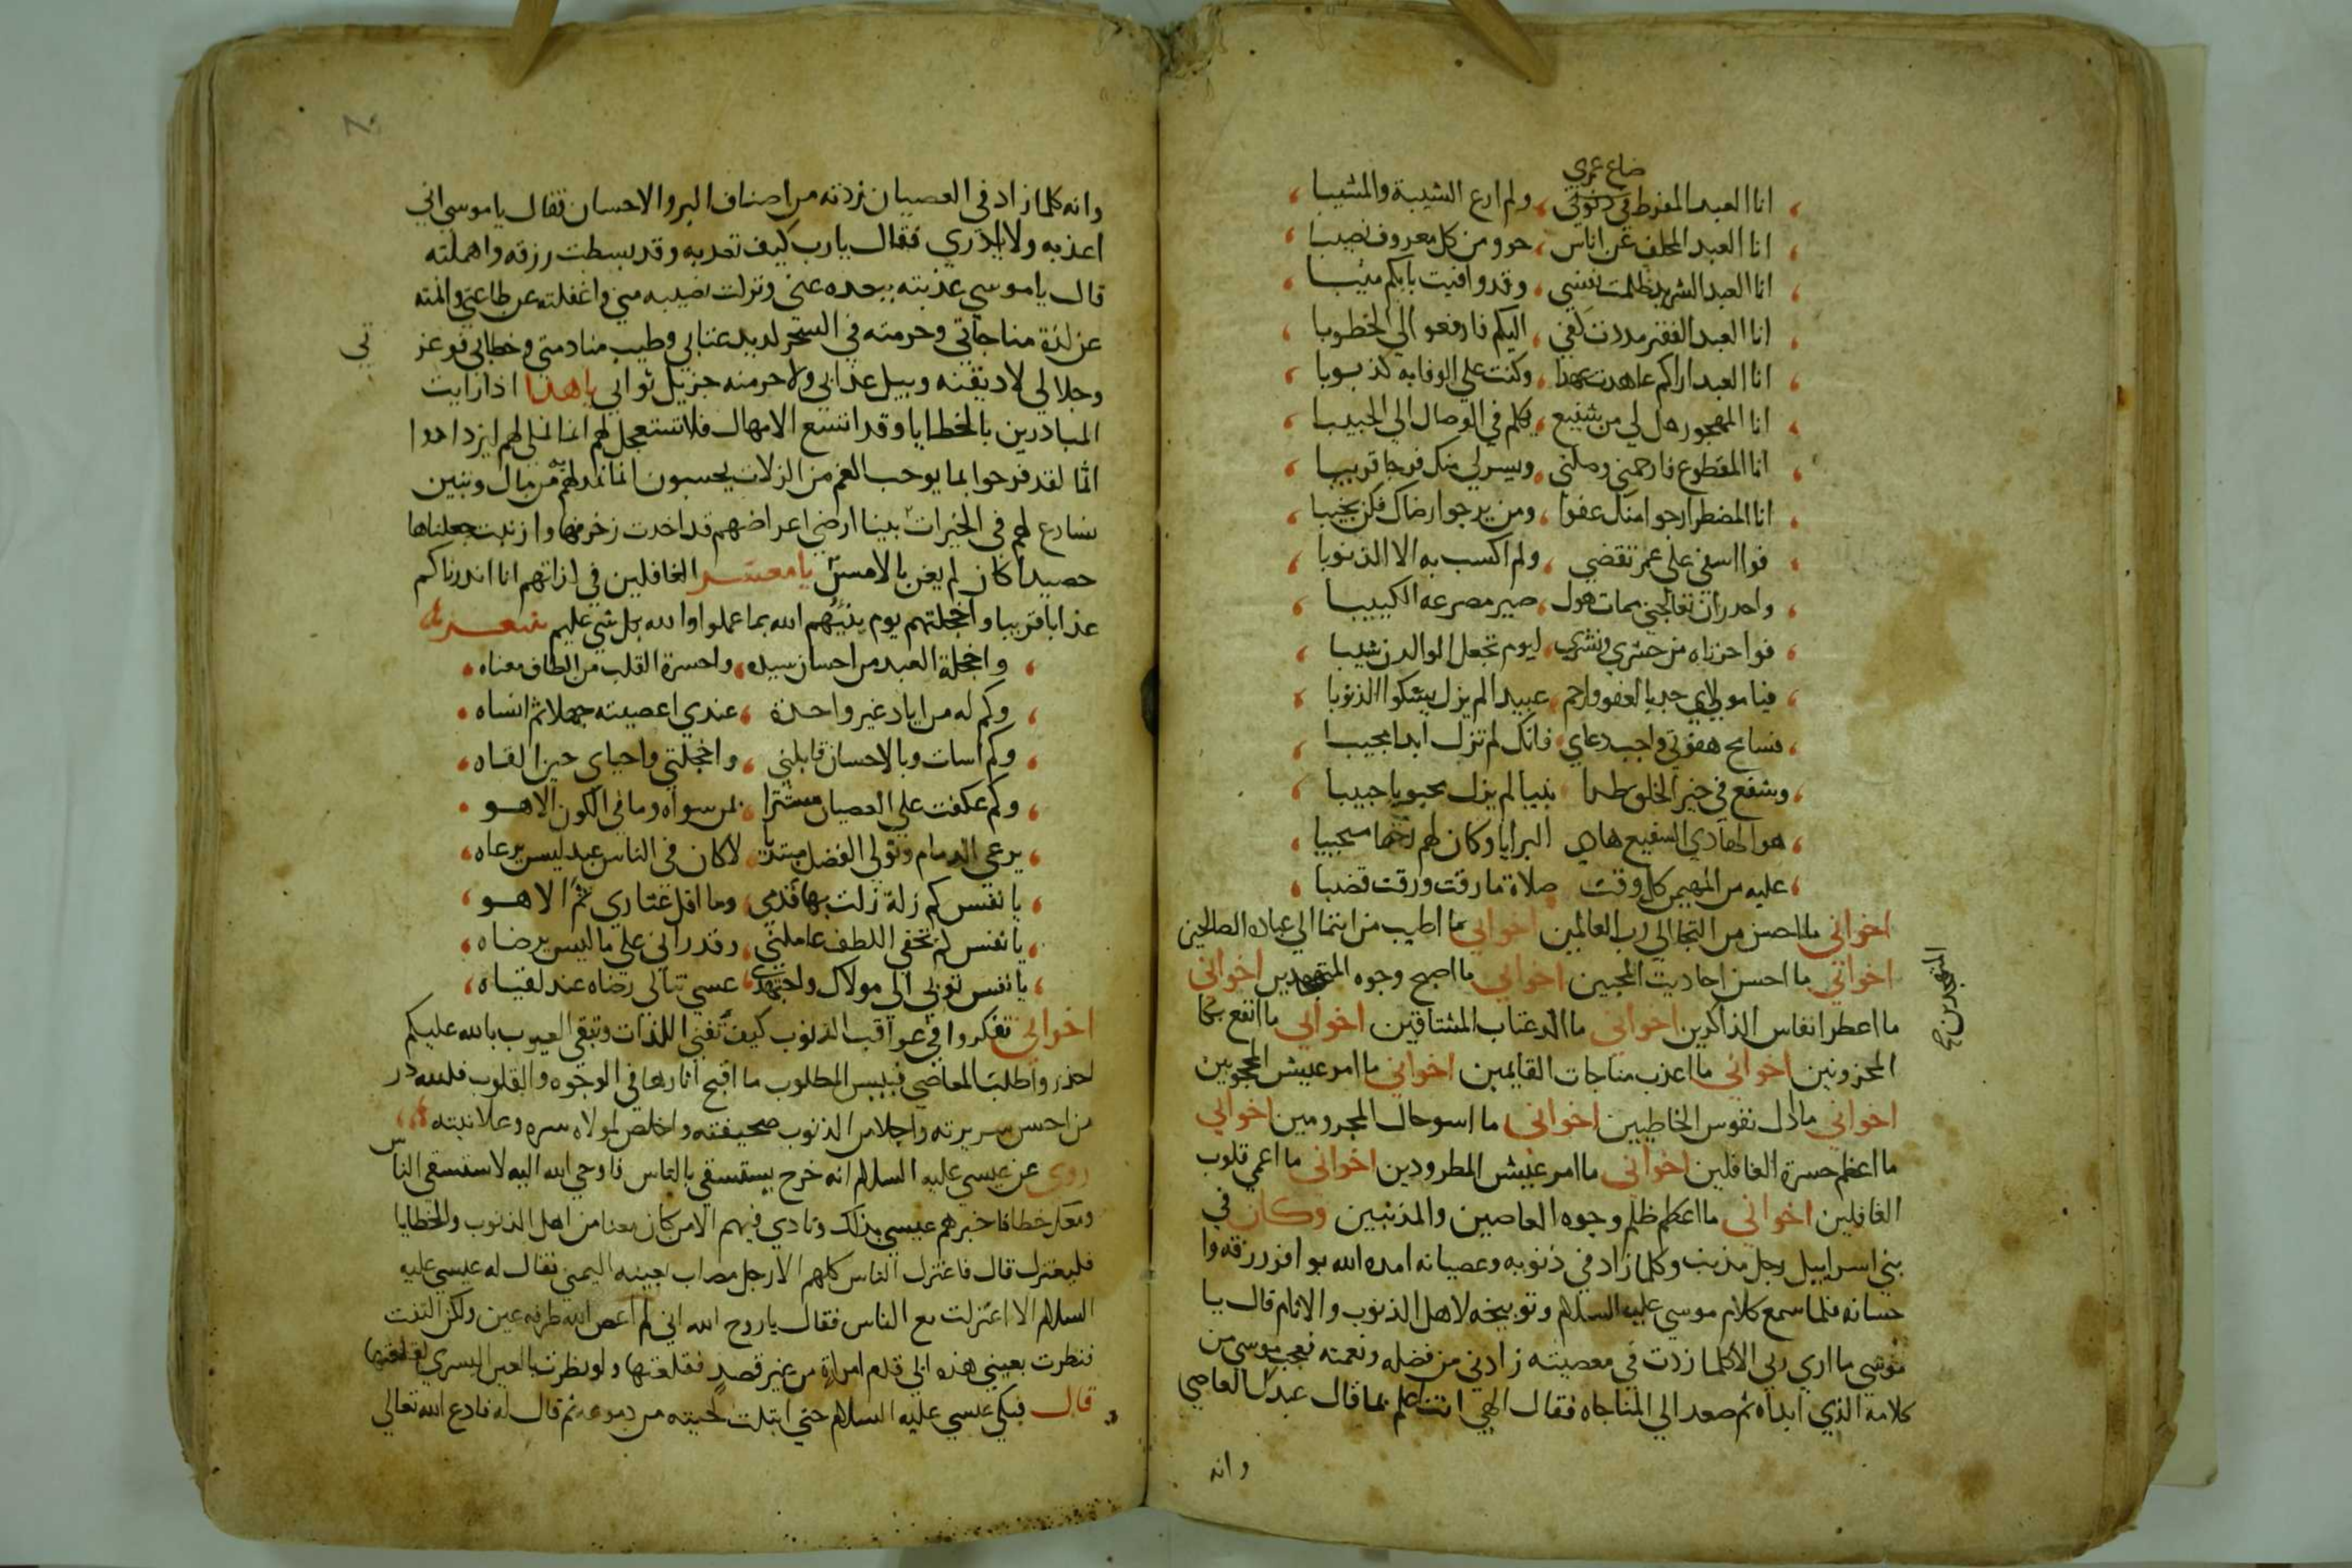 ضاع عمري
انا العبد المفرط في ذنوبي ، ولم ارع الشيبة والمشيبا
انا العبد المخلف عن اناس ، حوو من كل معروف نصيبا
انا العبد الشريد ظلمت نفسي ، وقد وافيت بابكم منيبا
انا العبد الفقير مددت كفي ، اليكم فارفعو الي الخطوبا
انا العبد اراكم عاهدت عهدا ، وكنت علي الوفا به كذوبا
انا المهجور هل لي من شفيع ، يكلم في الوصال الي الحبيبا
انا المقطوع فارحمني وصلني ، ويسر لي منك فرجا قريبا
انا المضطر ارجوا منك عفوا ، ومن يرجوا رضاك فلن يخيبا
فوا اسفي علي عمر تقضي ، ولم اكسب به الا الذنوبا
واحدر ان تعالجني ممات هول ، صير مصرعه الكييبا
فوا حزناه من حشري ونشري ، ليوم تجعل الوالدن شيبا
فيا مولاي جد بالعفو وارحم ، عبيدا لم يزل يشكوا الذنوبا
فسامح هفوتي واجب دعاي ، فانك لم تزل ابدا مجيبا
وشفع في خير الخلق طرا ، نبيا لم يزل محبوبا حبيبا
هو الهادي الشفيع هادي البرايا وكان لهم مجيبا
عليه من المهيمن كل وقت ، صلاة ما رقت ورقت قضيبا
اخواني ما احسن من التجا الي رب العالمين اخواني ما اطيب من انتما الي عباده الصالحين
اخواني ما احسن احاديث المحبين اخواني ما اصبح وجوه المتهجدين اخواني
المتهجدين صح
ما اعطر انفاس الذاكرين اخواني ما الد عتاب المشتاقين اخواني ما انفع بكا
المحزونين اخواني ما اعذب مناجات القايمين اخواني ما امر عييش المحجوبين
اخواني ما دل نفوس الخاطيين اخواني ما اسو حال المجرومين اخواني
ما اعظم حسرة الغافلين اخواني ما امر عييش المطرودين اخواني ما اعمي قلوب
الغافلين اخواني ما اعظم ظلم وجوه العاصين والمذنبين وكان في
بني اسراييل رجل مذنب وكلما زاد في ذنوبه وعصيانه امده الله بوافر رزقه وا
حسانه فلما سمع كلام موسي عليه السلام وتوبيخه لاهل الذنوب والاثام قال يا
موسي ما اري ربي الا كلما زدت في معصيته زادني من فضله ونعمته فعجب موسي من
كلامه الذي ابداه ثم صعد الي المناجاه فقال الهي انت اعلم بما قال عبدك العاصي
وانه
وانه كلما زاد في العصيان زدته من اصناف البر والاحسان فقال يا موسي اني
اعذبه ولا يدري فقال يا رب كيف تعدبه وقد بسطت رزقه واهملته
قال يا موسي عذبته ببعده عني ونزلت نصيبه مني واغفلته عن طاعتي وانمته
عن لذة مناجاتي وحرمته في السحر لديد عتابي وطيب منادمتي وخطابي فوعز
تي
وجلالي لاديقنه وبيل عدابي ولاحرمنه جزيل ثوابي يا هذا اذا رايت
المبادرين بالخطايا وقد اتسع الامهال فلا تستعجل لهم انما نملي لهم ليزدادوا
اثما لقد فرحوا بما يوجب الغم من الزلات يحسبون انما نمدهم به من مال وبنين
نسارع لهم في الخيرات بينا ارض اعراضهم قد اخدت زخرفها وازينت جعلناها
حصيدا كان لم يغن بالامس يا معشر الغافلين في لذاتهم انا انذرناكم
عذابا قريبا واخجلتهم يوم ينبيهم الله بما عملوا والله بكل شي عليم شعر
واخجلة العبد من احسان سيده ، واحسرة القلب من الطاف معناه
وكم له من اياد غير واحدة ، عندي اعصيته جهلا ثم انساه
وكم اسات وبالاحسان قابلني ، واخجلتي واحياي حين القاه
وكم عكفت علي العصيان مستترا ، لمن سواه وما في الكون الا هو
يرعي الدمام وتولي الفضل مبتديا ، لا كان في الناس عبد ليس يرعاه
يا نفس كم زلة زلت بها قدمي ، وما اقل عثاري ثم الا هو
يا نفس كم تخفي اللطف عاملني ، وقد راني علي ما ليس يرضاه
يا نفس توبي الي مولاك واجتهدي ، عسي تنالي رضاه عند لقياه
اخواني تفكروا في عواقب الذنوب كيف تفني اللذات وتبقي العيوب بالله عليكم
احذروا طلب المعاصي فبيس المطلوب ما اقبح اثارها في الوجوه والقلوب فلله در
من احسن سريرته واجلا من الذنوب صحيفته واخلص لمولاه سره وعلانيته
روي عن عيسي عليه السلام انه خرج يستسقي بالناس فاوحي الله اليه لا تستسقي الناس
ومعك خطا فاخبرهم عيسي بذلك ونادي فيهم الا من كان معنا من اهل الذنوب والخطايا
فليعتزل قال فاعتزل الناس كلهم الا رجل مصاب بعينه اليمني فقال له عيسي عليه
السلام الا اعتزلت مع الناس فقال يا روح الله اني لم اعص الله طرفه عين ولكن التفت
فنظرت بعيني هذه الي قدم امراة من غير قصد فقلعتها ولو نظرت بالعين اليسري لقلعتها
قال فبكي عيسي عليه السلام حتي ابتلت لحيته من دموعه ثم قال له فادع الله تعالي